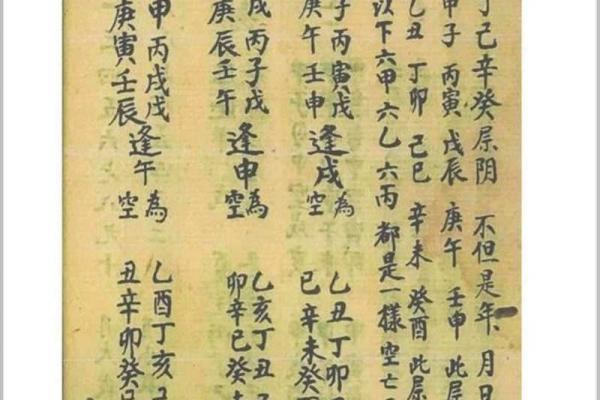 丁己辛癸属阴 不但是年、月日
甲子 丙寅 戊辰 庚午 壬申 此属
乙丑 丁卯 己巳 辛未 癸酉 此属
以下六甲六乙六丙 都是一樣 空亡
子丙寅戊
庚午壬申 逢戌為空 乙丑丁卯
巳辛未癸
戌丙子戊
庚辰壬午 逢申為空 乙亥丁丑
卯辛巳癸
申丙戌戊
庚寅壬辰 逢午為空 乙酉丁亥
丑辛卯癸